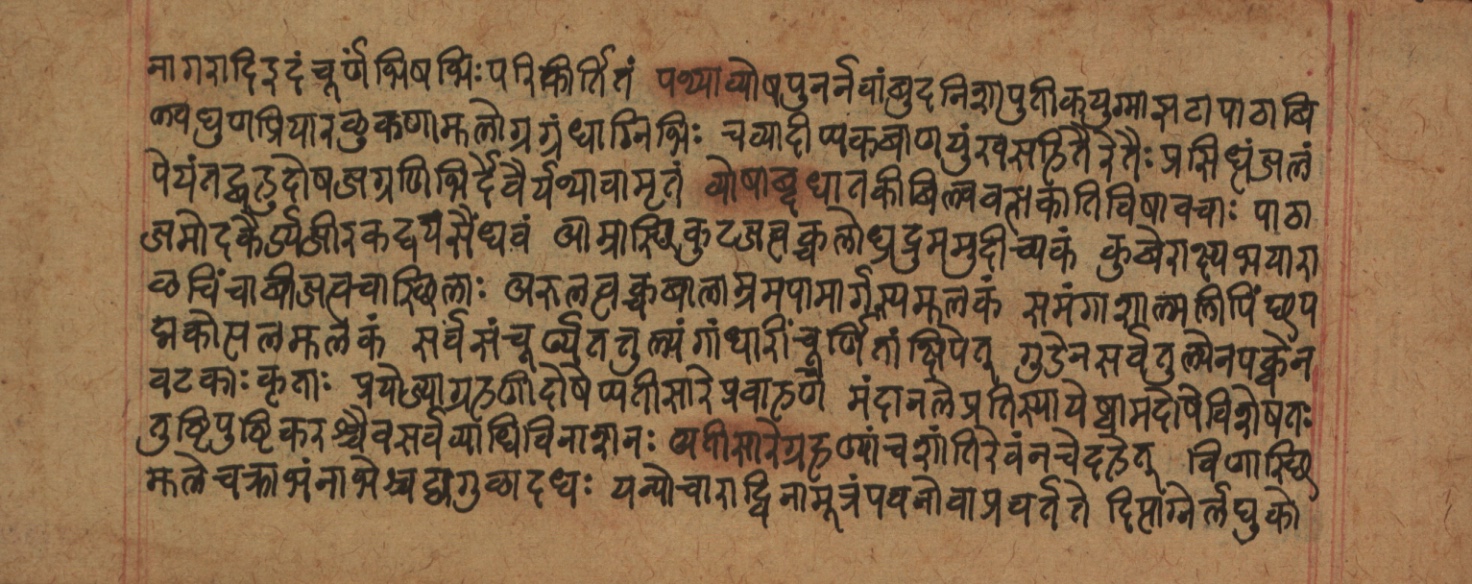 नागरादि इदं चूर्ण भिषभिः परिकीर्तितं पथ्याव्योषपुनर्नवांबुदनिशापुतीकयुग्मासटापाठाबि
ल्वघुणप्रियारळुकणामूलोग्रग्रंधाग्निभिः चव्यादीप्यकबाणपुंखसहितैरेतैः प्रसिधृंजलं
पेयंतद्बहुदोषजग्रणिभिर्दैवैर्यथावामृतं व्योषाब्दधातकीबिल्ववत्सकातिविषावचाः पाठा
जमोदकैर्ड्यजीरकद्वयसैंधवं आम्रास्थिकुटजत्वक्चलोध्रद्रुममुदीच्यकं कुबेराक्ष्यभयारा
ळचिंचाबीजत्वचास्थिलाः अरुलत्वक्चबालाम्रमपामार्गस्यमूलकं समंगाशाल्मलीपिंछप
द्मकोत्पलमूलकं सर्वसंचूर्ण्यतत्तुल्यंगांधारींचूर्णितांक्षिपेत् गुडेनसर्वतुल्येनपक्वेन
वटकाः कृताः प्रयोज्याग्रहणीदोषेप्यतीसारेप्रवाहणे मंदानलेप्रतिस्यायेष्वामदोषेविशेषतः
तुष्टिपुष्टिकरश्चैवसर्वव्याधिविनाशनः अतीसारेग्रहण्यांचशांतिरेवंनचेद्दहेत् विणास्थि
मूलेचक्राभंनाभेश्चद्व्यगुळादधः यन्योचाराद्विनामूत्रंपवनोवाप्रवर्तते दिप्ताग्नेर्लघुको